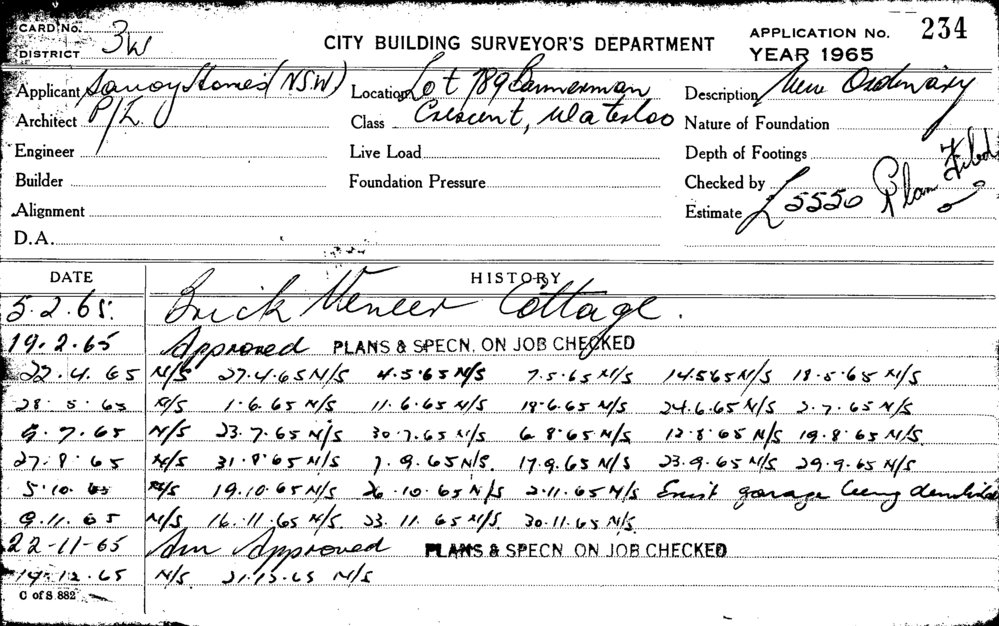 CARD No.
DISTRICT 3W
CITY BUILDING SURVEYOR'S DEPARTMENT
APPLICATION No. 234
YEAR 1965
Applicant Savoy Homes (N.S.W)
Location Lot 789 Bannerman
Description New Ordinary
Architect P/L
Class Crescent, Waterloo
Nature of Foundation
Engineer
Live Load
Depth of Footings
Builder
Foundation Pressure
Checked by
Plan Filed
Alignment
Estimate £5550
D.A.
DATE HISTORY
5.2.65. Brick Veneer Cottage.
19.2.65 Approved PLANS & SPECN. ON JOB CHECKED
22.4.65 N/S 27.4.65 N/S 4.5.65 N/S 7.5.65 N/S 14.5.65 N/S 18.5.65 N/S
28.5.65 N/S 1.6.65 N/S 11.6.65 N/S 18.6.65 N/S 24.6.65 N/S 2.7.65 N/S
5.7.65 N/S 23.7.65 N/S 30.7.65 N/S 6 8.65 N/S 12.8.65 N/S 19.8.65 N/S
27.8.65 N/S 31.8.65 N/S 7.9.65 N/S. 17.9.65 N/S 23.9.65 N/S 29.9.65 N/S
5.10.65 N/S 19.10.65 N/S 26.10.65 N/S 2.11.65 N/S Exist garage being demolished
9.11.65 N/S 16.11.65 N/S. 23.11.65 N/S 30.11.65 N/S
22-11-65 Am Approved PLANS & SPECN ON JOB CHECKED
14.12.65 N/S 21.12.65 N/S
C of S 882